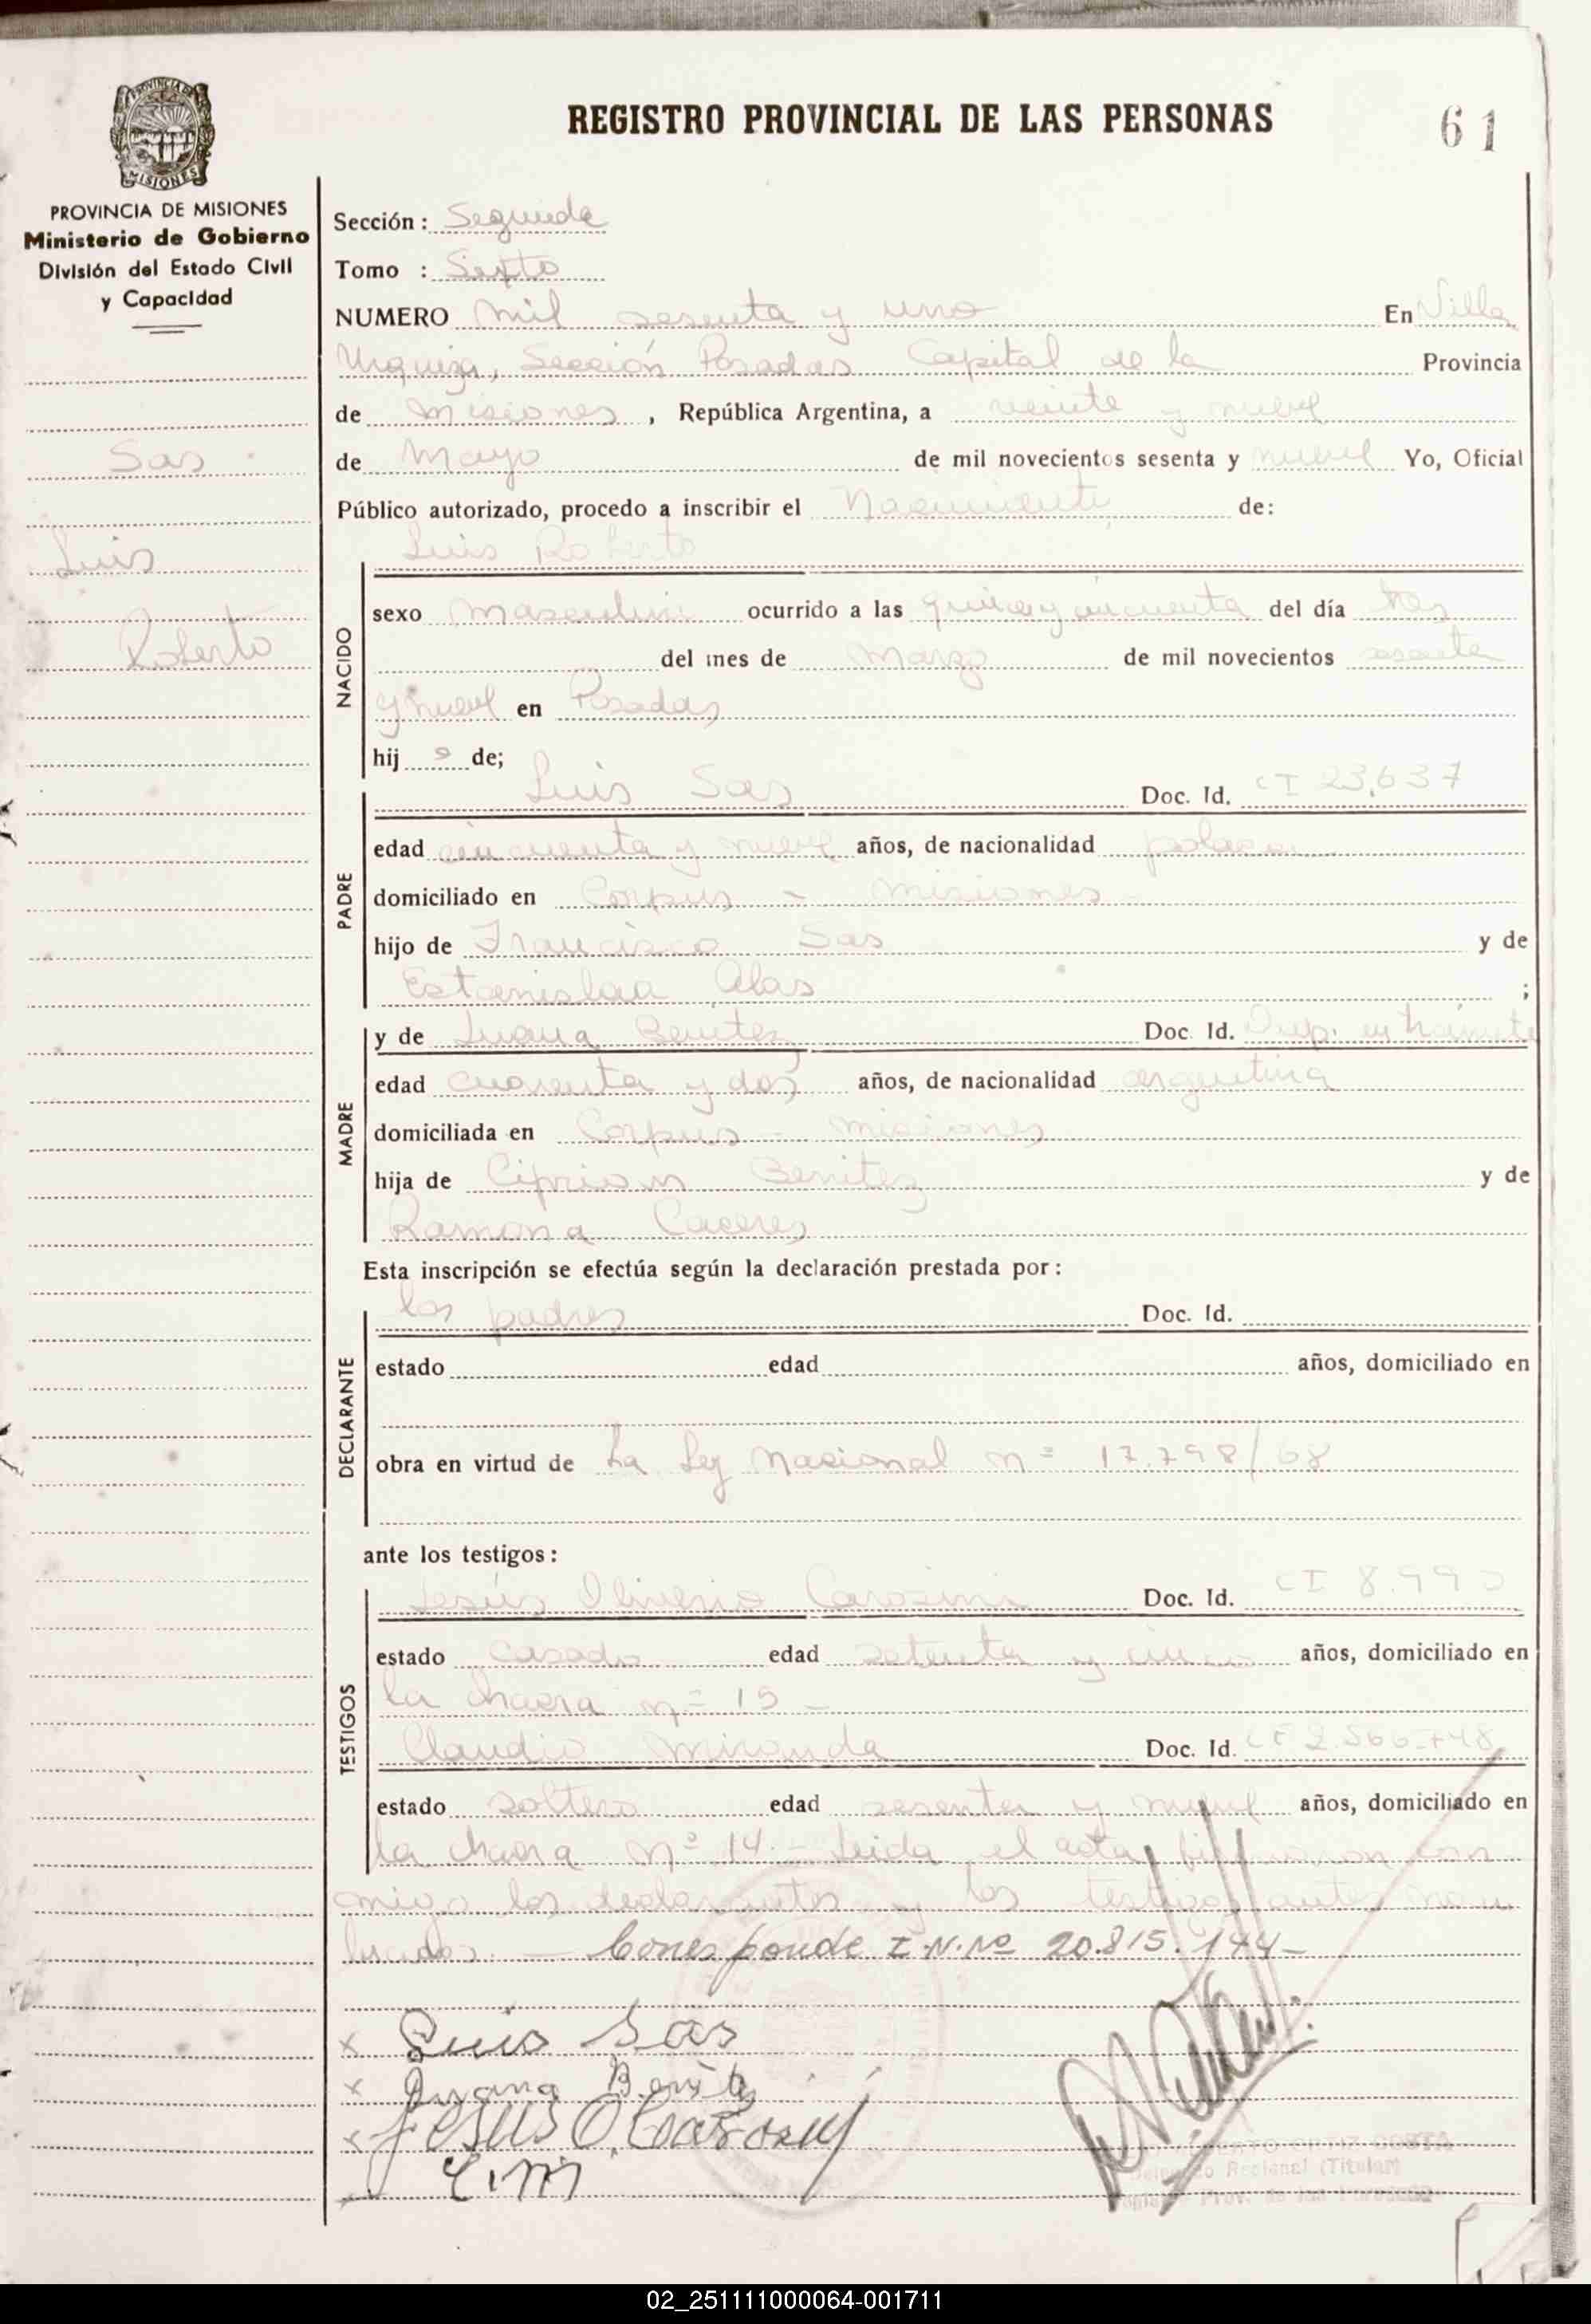 REGISTRO PROVINCIAL DE LAS PERSONAS
61
PROVINCIA DE MISIONES
PROVINCIA DE MISIONES
Ministerio de Gobierno
División del Estado Civil
y Capacidad
Sas
Luis
Roberto
Sección: Segunda
Tomo : Sexto
NUMERO Mil sesenta y uno En Villa
Urquiza, Sección Posadas Capital de la Provincia
de Misiones, República Argentina, a veinte y nueve
de Mayo de mil novecientos sesenta y nueve Yo, Oficial
Público autorizado, procedo a inscribir el Nacimiento de:
Luis Roberto
NACIDO
sexo Masculino ocurrido a las quince y cincuenta del día tres
del mes de Marzo de mil novecientos sesenta
y nueve en Posadas
hij o de;
PADRE
Luis Sas Doc. Id. CI 23.637
edad cincuenta y nueve años, de nacionalidad polaca
domiciliado en Corpus - Misiones -
hijo de Francisco Sas y de
Estanislaa Alas ;
MADRE
y de Juana Benitez Doc. Id. Dup. en trámite
edad cuarenta y dos años, de nacionalidad argentina
domiciliada en Corpus - Misiones
hija de Ciprian Benitez y de
Ramona Caceres
Esta inscripción se efectúa según la declaración prestada por:
DECLARANTE
los padres Doc. Id.
estado edad años, domiciliado en
obra en virtud de La Ley Nacional nº 17.798/68
ante los testigos:
TESTIGOS
Jesús Oliverio Carosini Doc. Id. CI 8.990
estado casado edad setenta y cinco años, domiciliado en
la chacra nº 15 -
Claudio Miranda Doc. Id.
estado soltero edad sesenta y nueve años, domiciliado en
la chacra Nº 14.- Leida el acta, firmaron con
migo los declarantes y los testigos antes men
cionados. - Corresponde I.N.Nº 20.815.144-
x Luis Sas
x Juana Benitez
x Jesus O. Carosini
x C.M
Delegado Regional (Titular)
Registro Prov. de las Personas
02_251111000064-001711